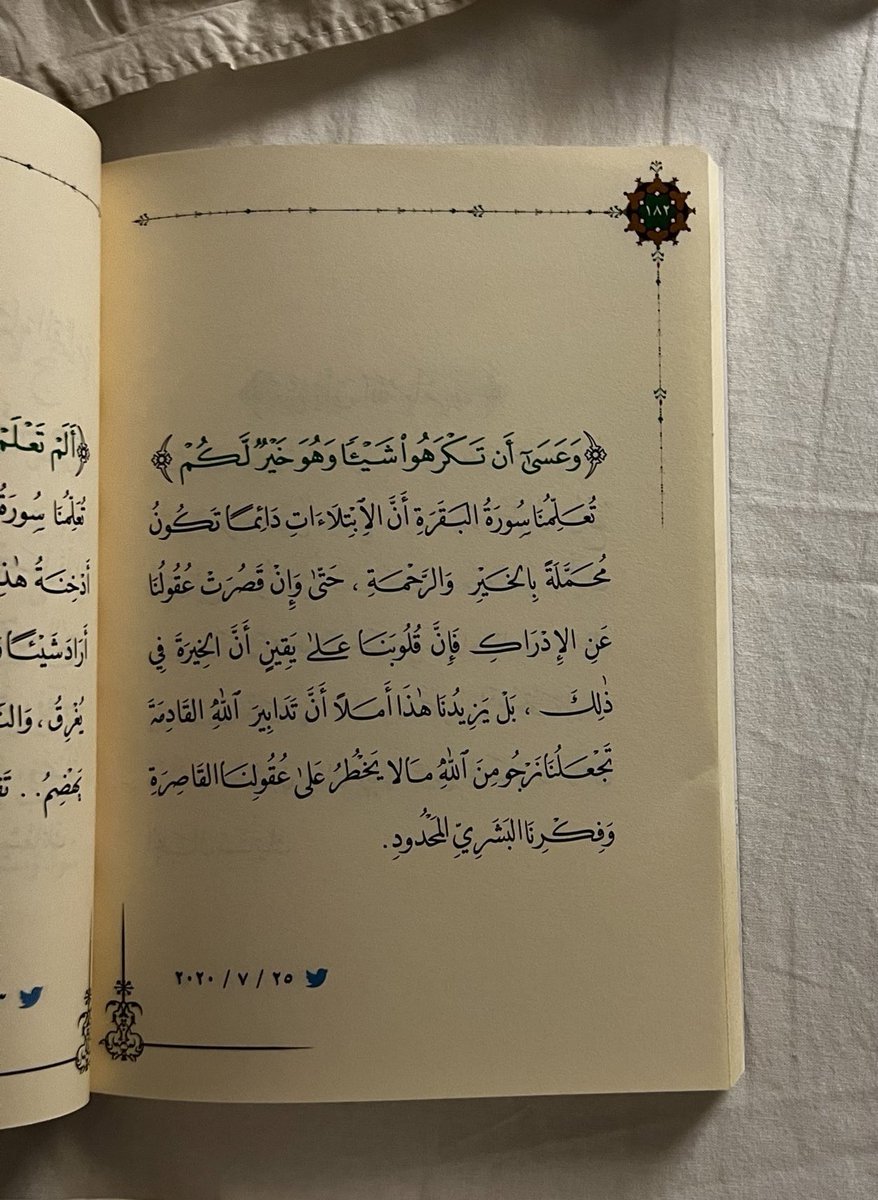 ١٨٢
﴿وَعَسَىٰٓ أَن تَكْرَهُوا۟ شَيْـًٔا وَهُوَ خَيْرٌ لَّكُمْ﴾
تُعَلِّمُنَا سُورَةُ البَقَرَةِ أَنَّ الِابْتِلَاءَاتِ دَائِمًا تَكُونُ
مُحَمَّلَةً بِالخَيْرِ وَالرَّحْمَةِ ، حَتَّىٰ وَإِنْ قَصُرَتْ عُقُولُنَا
عَنِ الإِدْرَاكِ فَإِنَّ قُلُوبَنَا عَلىٰ يَقِينٍ أَنَّ الخِيرَةَ فِي
ذٰلِكَ ، بَلْ يَزِيدُنَا هٰذَا أَمَلاً أَنَّ تَدَابِيرَ ٱللّٰهِ القَادِمَةَ
تَجْعَلُنَا نَرْجُو مِنَ ٱللّٰهِ مَالا يَخْطُرُ عَلىٰ عُقُولِنَا القَاصِرَةِ
وَفِكْرِنَا البَشَرِيِّ المَحْدُودِ.
٢٠٢٠ / ٧ / ٢٥
﴿أَلَمْ تَعْلَمْ
تُعَلِّمُنَا سُورَةُ
أَدْخِنَةُ
أَرَادَ شَيْئًا
يُغْرِقُ ، وَ
يَهْضِمُ..